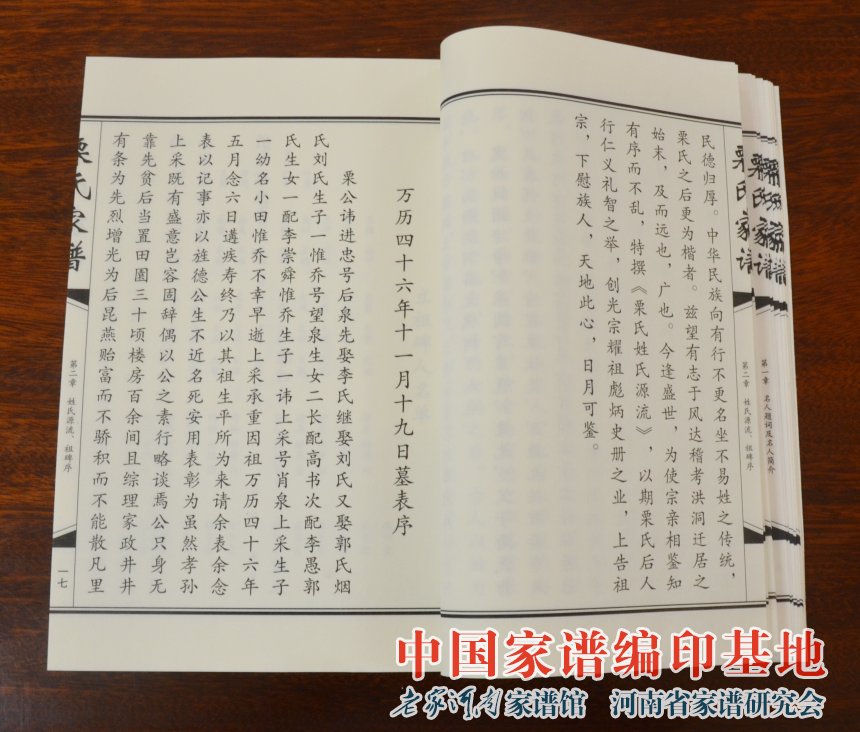 民德归厚。中华民族向有行不更名坐不易姓之传统，
栗氏之后更为楷者。兹望有志于风达稽考洪洞迁居之
始末，及而远也，广也。今逢盛世，为使宗亲相鉴知
有序而不乱，特撰《栗氏姓氏源流》，以期栗氏后人
行仁义礼智之举，创光宗耀祖彪炳史册之业，上告祖
宗，下慰族人，天地此心，日月可鉴。
栗氏家谱
第二章 姓氏源流、祖碑序
栗氏家谱
第一章 名人题词及名人简介
万历四十六年十一月十九日墓表序
栗公讳进忠号后泉先娶李氏继娶刘氏又娶郭氏烟
氏刘氏生子一惟乔号望泉生女二长配高书次配李愚郭
氏生女一配李崇舜惟乔生子一讳上采号肖泉上采生子
一幼名小田惟乔不幸早逝上采承重因祖万历四十六年
五月念六日遘疾寿终乃以其祖生平所为来请余表余念
表以记事亦以旌德公生不近名死安用表彰为虽然孝孙
上采既有盛意岂容固辞偶以公之素行略谈焉公只身无
靠先贫后当置田园三十顷楼房百余间且综理家政井井
有条为先烈增光为后昆燕贻富而不骄积而不能散凡里
栗氏家谱
第二章 姓氏源流、祖碑序
一七
中国家谱编印基地
老家河南家谱馆 河南省家谱研究会